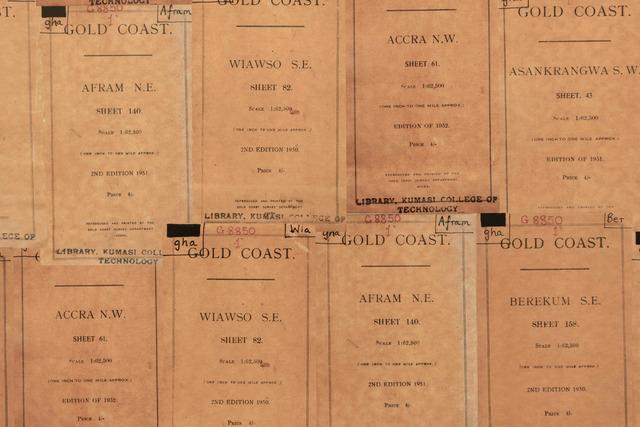 TECHNOLOGY
gha
G 8850
1"
Afram
GOLD COAST.
AFRAM N.E.
SHEET 140.
SCALE 1:62,500
(ONE INCH TO ONE MILE APPROX.)
2ND EDITION 1951
PRICE 4/-
REPRODUCED AND PRINTED BY THE
GOLD COAST SURVEY DEPARTMENT
LIBRARY, KUMASI COLL
TECHNOLOGY
GOLD COAST.
WIAWSO S.E.
SHEET 82.
SCALE 1:62,500
(ONE INCH TO ONE MILE APPROX.)
2ND EDITION 1950.
PRICE 4/-
REPRODUCED AND PRINTED BY THE
GOLD COAST SURVEY DEPARTMENT
LIBRARY, KUMASI COLLEGE OF
ACCRA N.W.
SHEET 61.
SCALE 1:62,500
(ONE INCH TO ONE MILE APPROX.)
EDITION OF 1952.
PRICE 4/-
REPRODUCED AND PRINTED BY THE
GOLD COAST SURVEY DEPARTMENT
LIBRARY, KUMASI COLLEGE OF
TECHNOLOGY
GOLD COAST.
ASANKRANGWA S.W.
SHEET. 43
SCALE 1:62,500
(ONE INCH TO ONE MILE APPROX.)
EDITION OF 1951.
PRICE 4/-
EGE OF
ACCRA N.W.
SHEET 61.
SCALE 1:62,500
(ONE INCH TO ONE MILE APPROX.)
EDITION OF 1952.
PRICE 4/-
gha
G 8850
1"
Wia
GOLD COAST.
WIAWSO S.E.
SHEET 82.
SCALE 1:62,500
(ONE INCH TO ONE MILE APPROX.)
2ND EDITION 1950.
PRICE 4/-
gna
G 8850
1"
Afram
GOLD COAST.
AFRAM N.E.
SHEET 140.
SCALE 1:62,500
(ONE INCH TO ONE MILE APPROX.)
2ND EDITION 1951
PRICE 4/-
gha
G 8850
1"
Ber
GOLD COAST.
BEREKUM S.E.
SHEET 158.
SCALE 1:62,500
(ONE INCH TO ONE MILE APPROX.)
2ND EDITION 1950.
PRICE 4/-